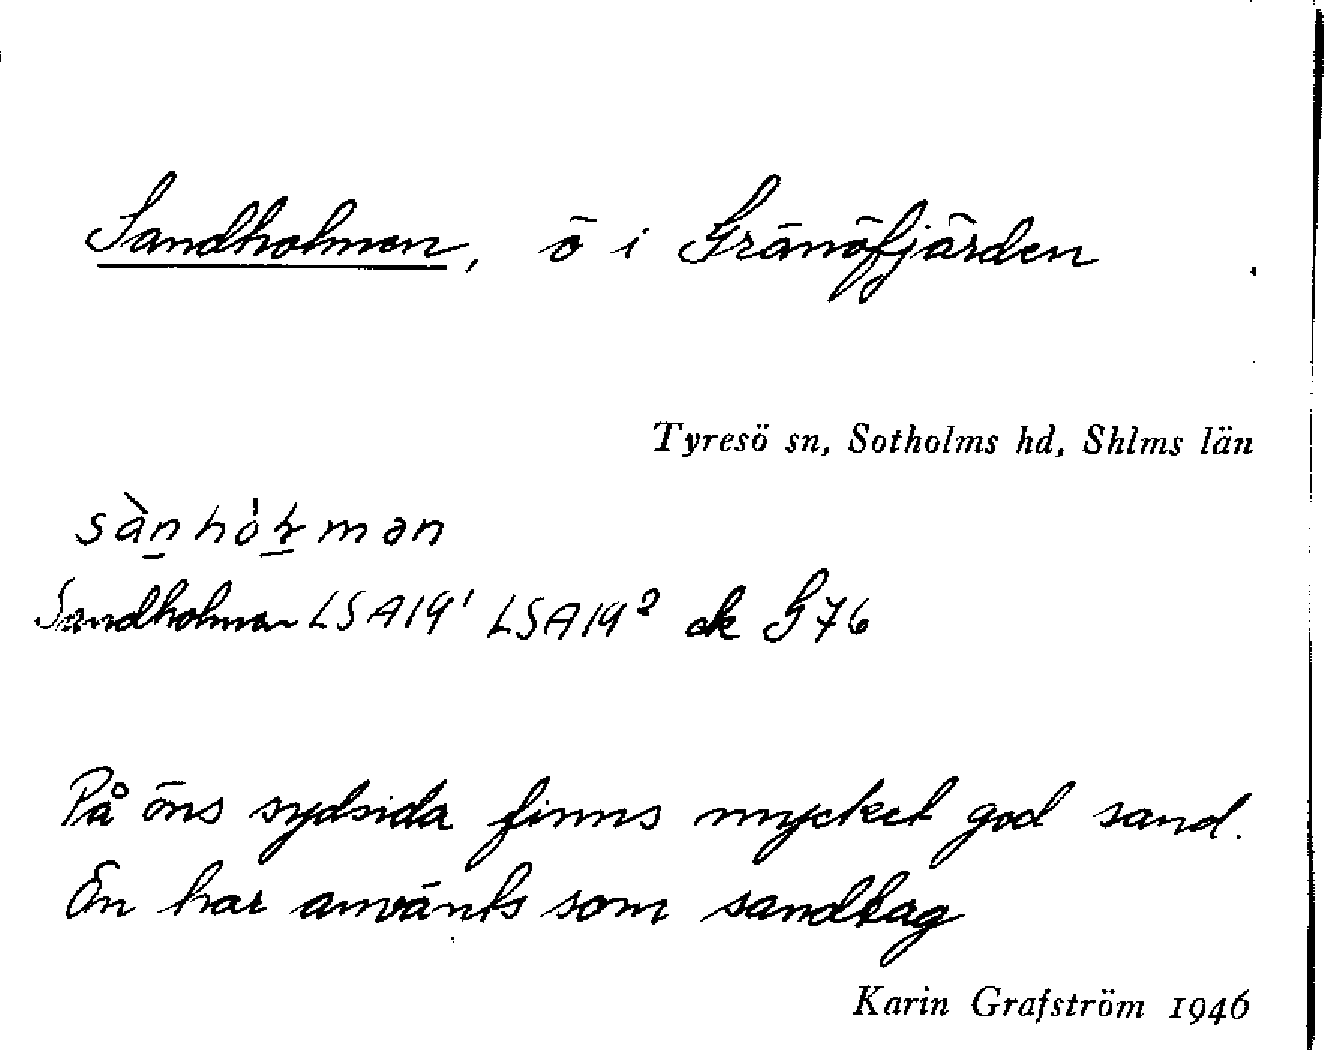 Sandholmen, ö i Gränöfjärden
Tyresö sn, Sotholms hd, Shlms län
Sandholmen LSA19¹ LSA19² ek G76
På öns sydsida finns mycket god sand.
Ön har använts som sandtag
Karin Grafström 1946